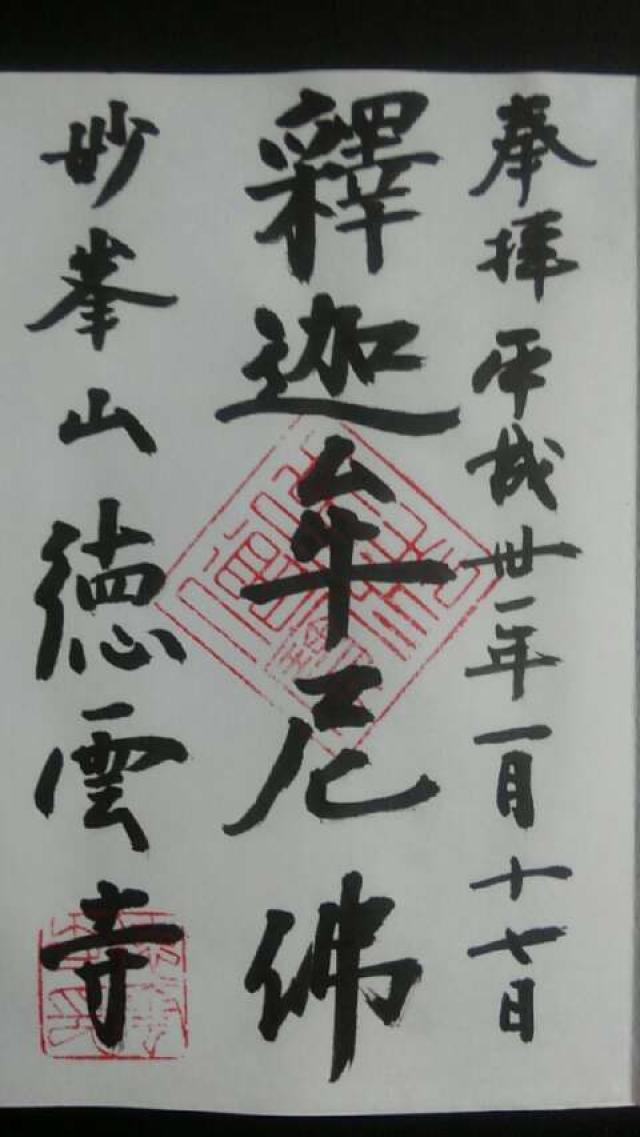 奉拝 平成卅一年一月十七日
釋迦牟尼佛
妙峯山 徳雲寺